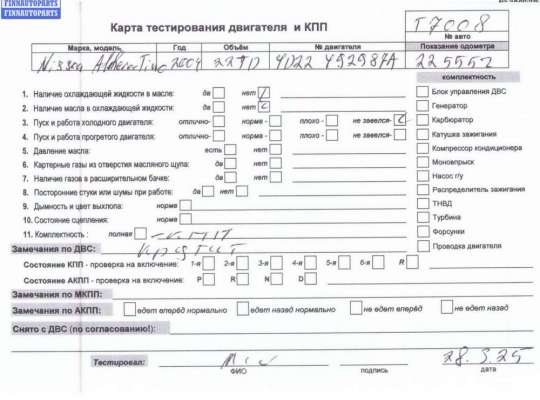 FINNAUTOPARTS
FINNAUTOPARTS
Карта тестирования двигателя и КПП
T7008
№ авто
Марка, модель
Год
Объём
№ двигателя
Показание одометра
Nissan Almera Tino 2004 22TD YD22 492987A 225552
комплектность
1. Наличие охлаждающей жидкости в масле: да нет
2. Наличие масла в охлаждающей жидкости: да нет
3. Пуск и работа холодного двигателя: отлично- норма - плохо - не завелся-
4. Пуск и работа прогретого двигателя: отлично- норма - плохо - не завелся-
5. Давление масла: есть нет
6. Картерные газы из отверстия масляного щупа: да нет
7. Наличие газов в расширительном бачке: да нет
8. Посторонние стуки или шумы при работе: да нет
9. Дымность и цвет выхлопа: норма
10. Состояние сцепления: норма
11. Комплектность : полная
Блок управления ДВС
Генератор
Карбюратор
Катушка зажигания
Компрессор кондиционера
Моновпрыск
Насос г/у
Распределитель зажигания
ТНВД
Турбина
Форсунки
Проводка двигателя
Замечания по ДВС: крутит
Состояние КПП - проверка на включение: 1-я 2-я 3-я 4-я 5-я 6-я R
Состояние АКПП - проверка на включение: P R N D
Замечания по МКПП:
Замечания по АКПП: едет вперёд нормально едет назад нормально не едет вперёд не едет назад
Снято с ДВС (по согласованию!):
Тестировал: 28.5.25
ФИО подпись дата